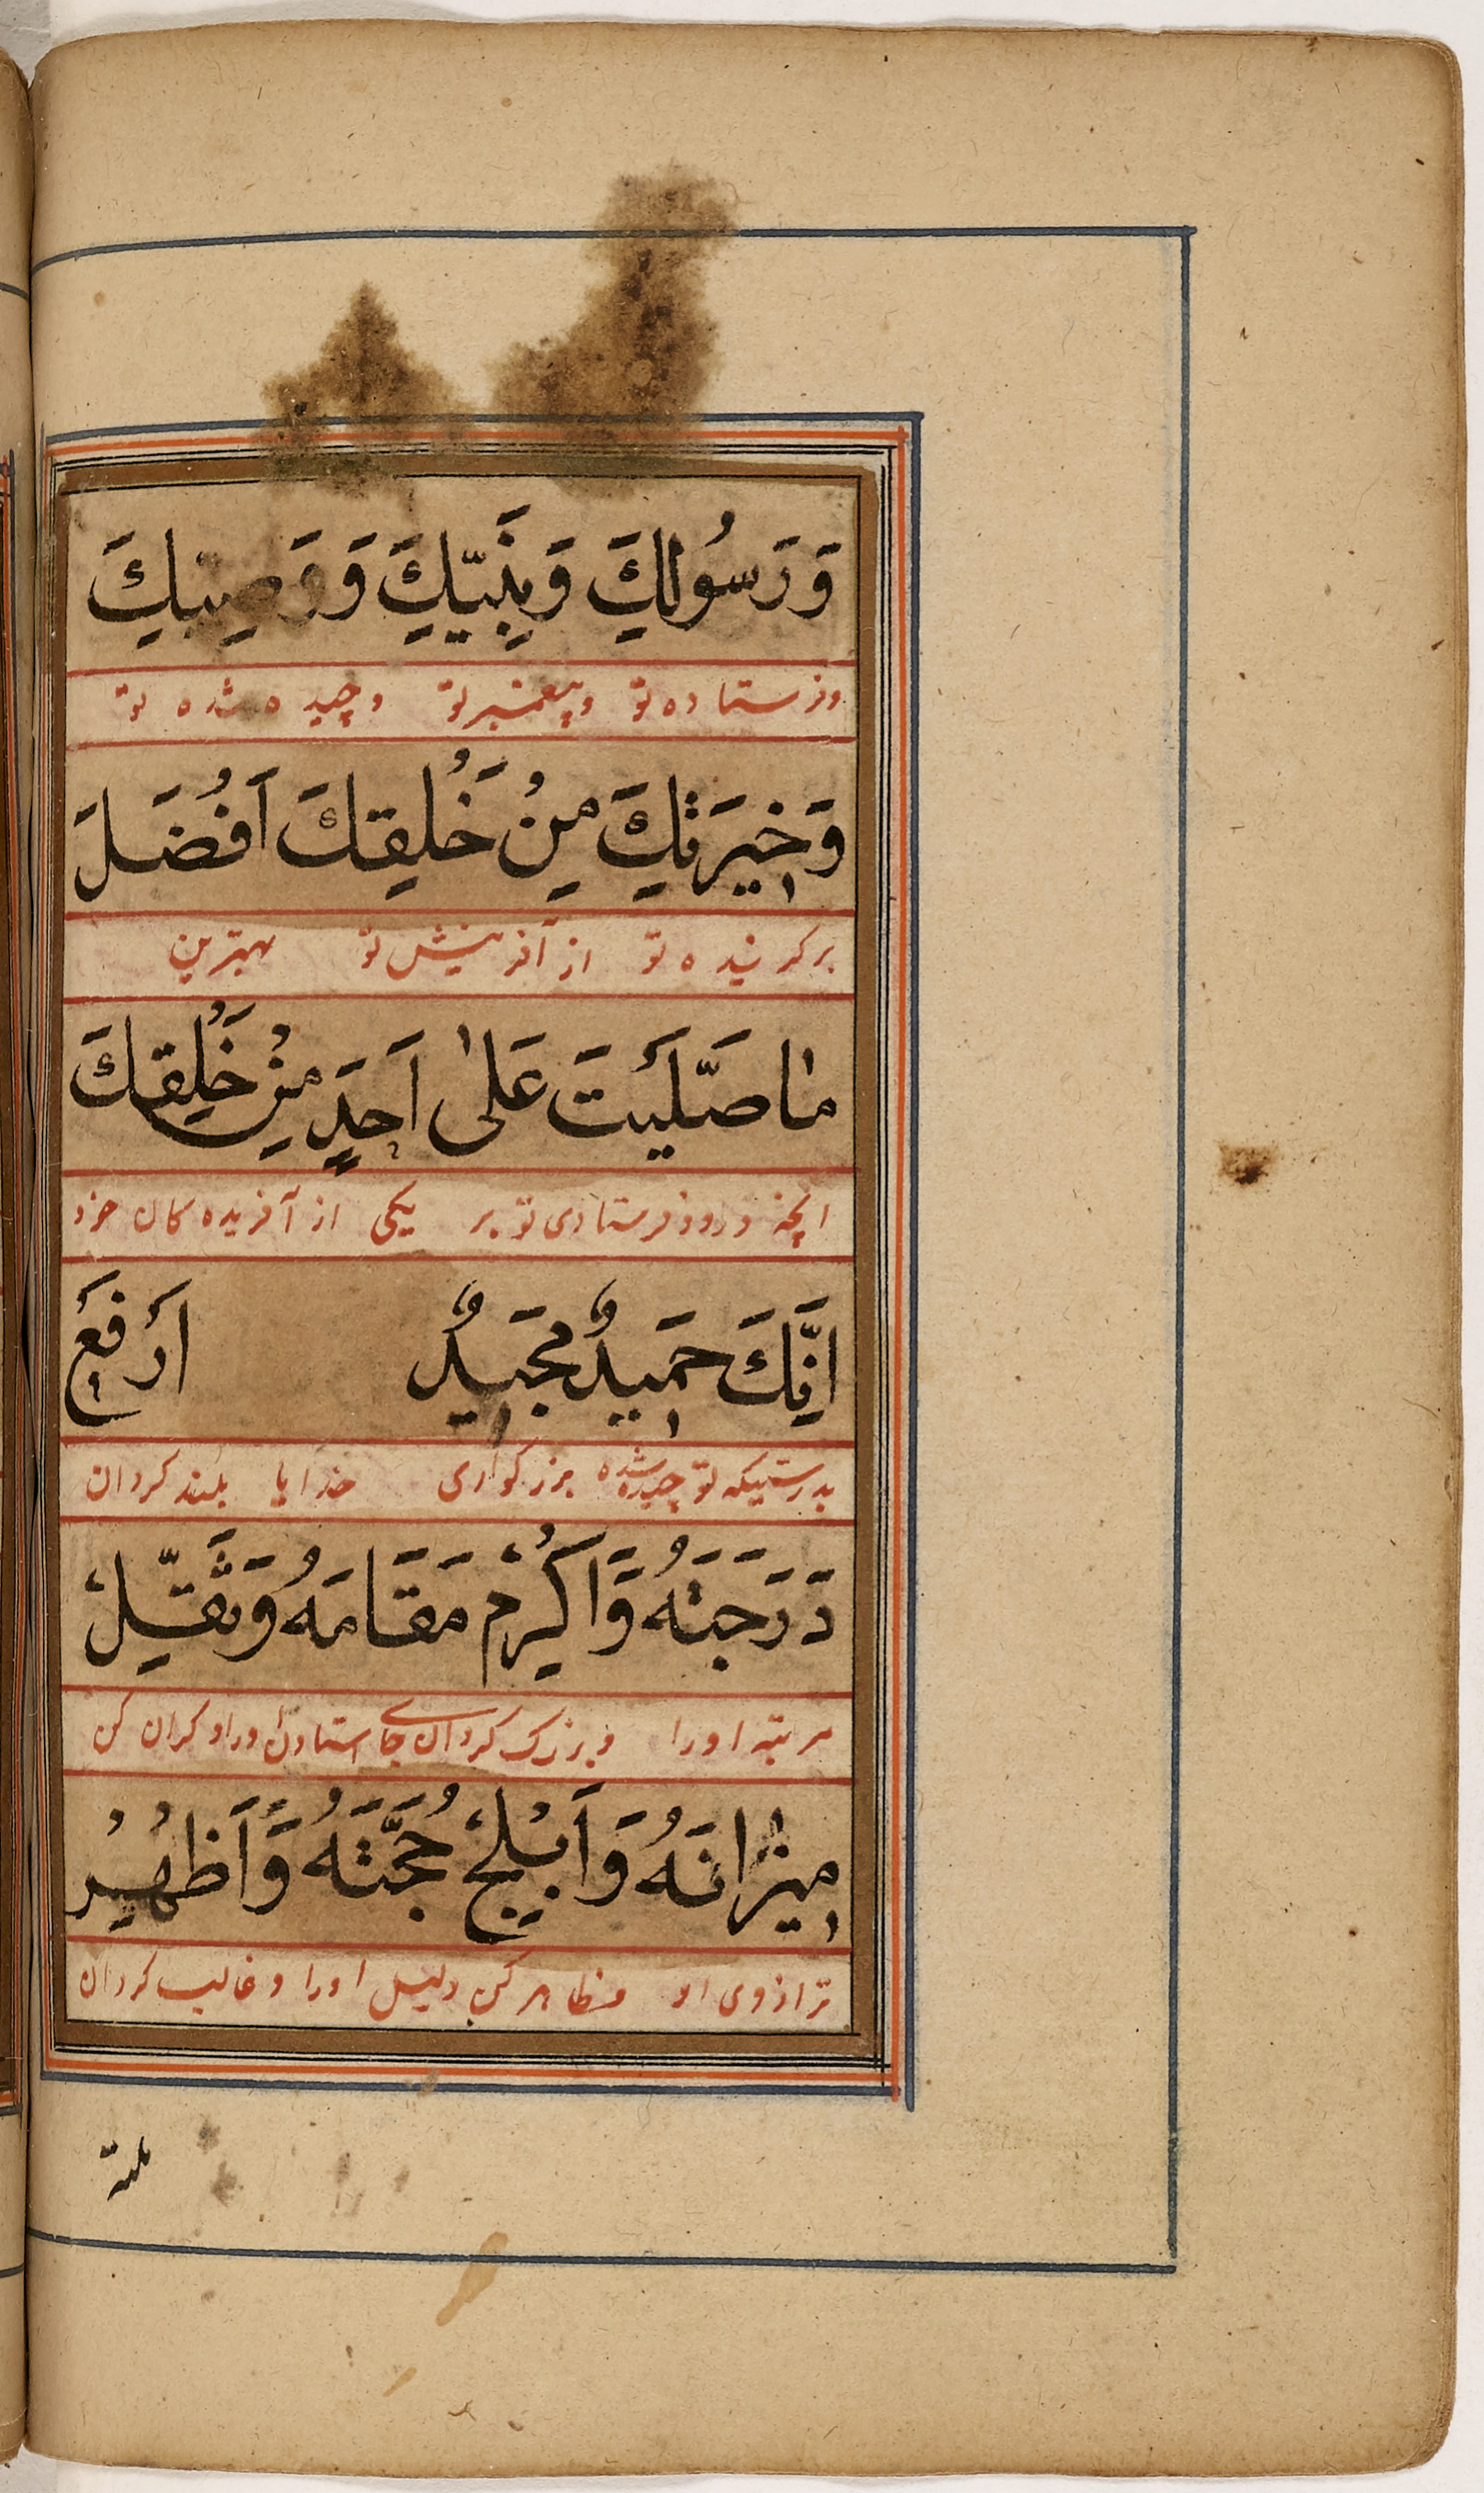 وَرَسُولِكَ وَنَبِيِّكَ وَوَصِيِكَ
وفرستاده تو وپیغمبر تو وچیده شده تو
وَخِيَرَتِكَ مِنْ خَلْقِكَ اَفْضَلَ
برکزیده تو از آفرینش تو بهترین
مٰا صَلَّيْتَ عَلىٰ اَحَدٍ مِنْ خَلْقِكَ
انچه درود فرستادی تو بر یکی از آفریده کان خود
اِنَّكَ حَمِيدٌ مُجَيِدٌ اَرْفَعْ
بدرستیکه تو بزرکواری خدایا بلند کردان
دَرَجَتَهُ وَاَكْرِمْ مَقَامَهُ وَثَقِّلْ
مرتبه اورا وبزرک کردان جای استادن اورا وکران کن
مِيزٰانَهُ وَاَبْلِجْ حُجَّتَهُ وَاَظْهِرْ
ترازوی او وظاهر کن دلیل اورا وغالب کردان
ملته